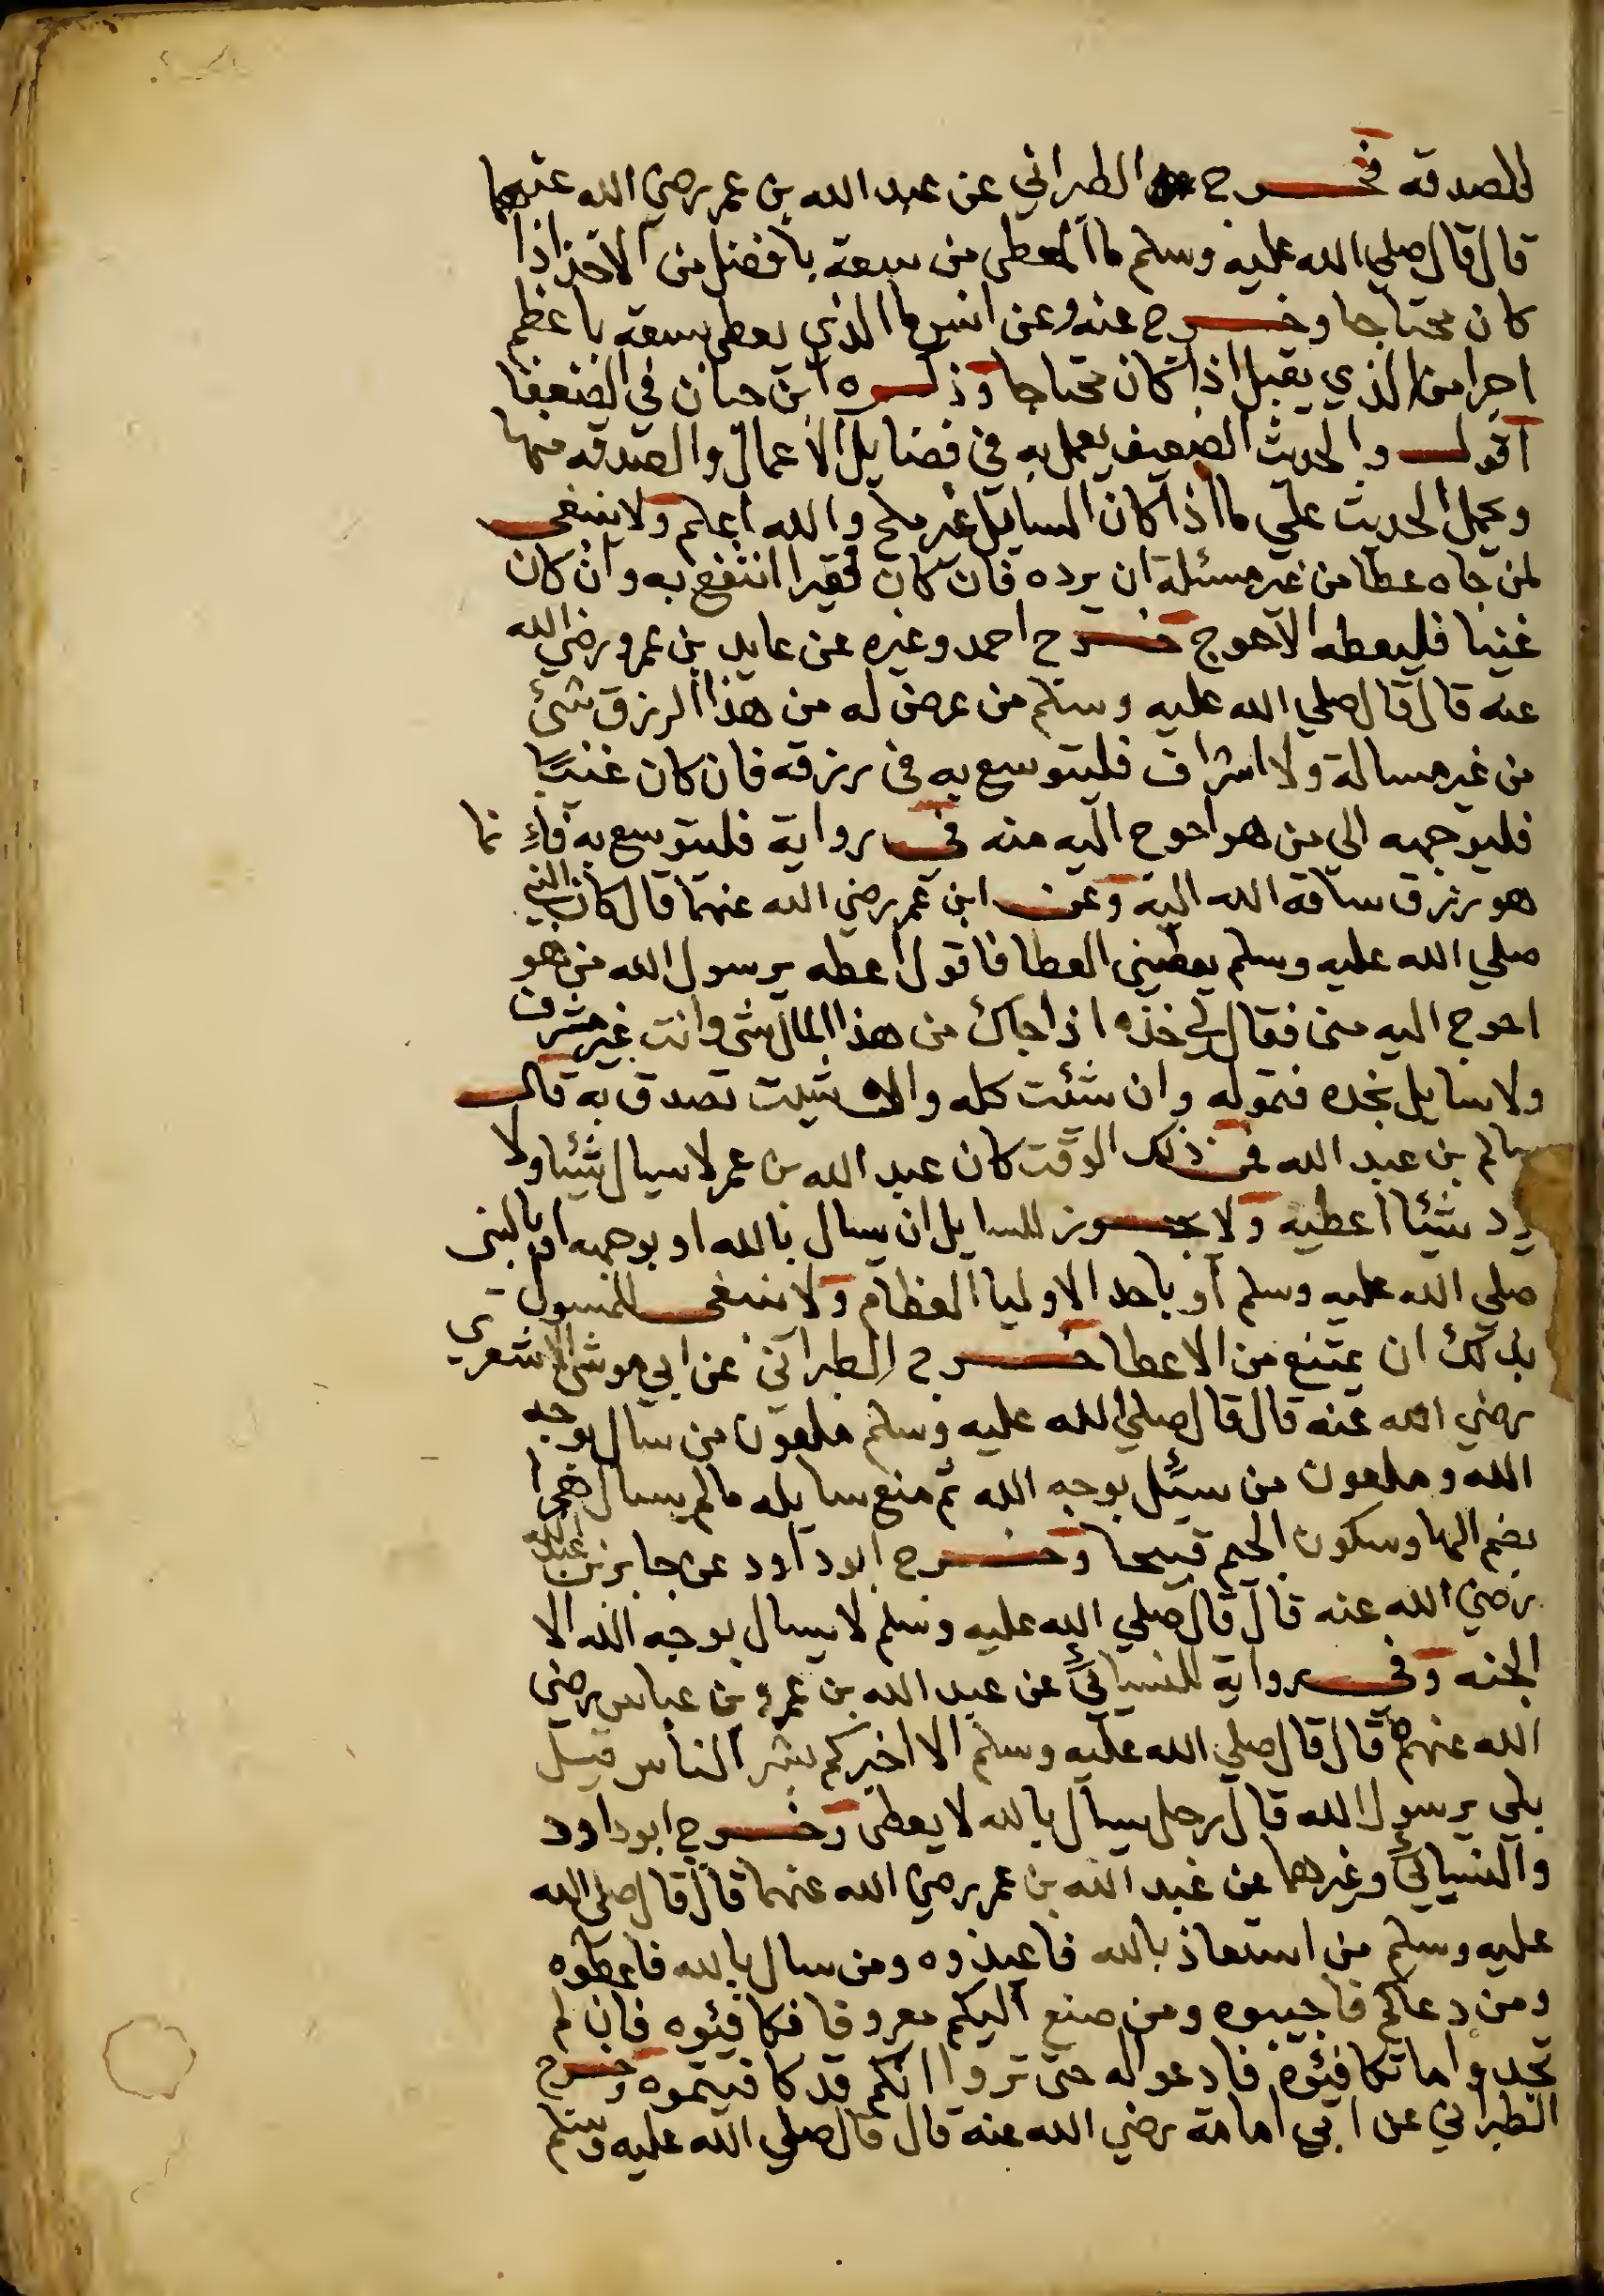 للصدقه فخرج الطبراني عن عبد الله بن عمر رضي الله عنهما
قال قال صلي الله عليه وسلم ما المعطي من سعة بافضل من الاخذ اذا
كان محتاجا وخرج عنه وعن انس ما الذي يعطي بسعة باعظم
اجرا من الذي يقبل اذا كان محتاجا وذكره ابن حبان في الضعفا
اقول والحديث الضعيف يعمل به في فضايل الاعمال والصدقه منها
ويحمل الحديث علي ما اذا كان السايل غير ملح والله اعلم ولا ينبغي
لمن جاه عطا من غير مسئلة ان يرده فان كان فقيرا انتفع به وان كان
غنيا فليعطه الاحوج خرج احمد وغيره عن عايد بن عمرو رضي الله
عنه قال قال صلي الله عليه وسلم من عرض له من هذا الرزق شئ
من غير مسالة ولا اشراف فليتوسع به في رزقه فان كان غنيا
فليوجهه الي من هو احوج اليه منه في رواية فليتوسع به فاءنما
هو رزق ساقه الله اليه وعن ابن عمر رضي الله عنهما قال كان النبي
صلي الله عليه وسلم يعطيني العطا فاقول اعطه يرسول الله من هو
احوج اليه مني فقال لي خذه اذا جاك من هذا المال شي وانت غير مشرف
ولا سايل فخده فتموله وان شئت كله وان شيت تصدق به قال
سالم بن عبد الله في ذلك الوقت كان عبد الله بن عمر لا يسال شيئا ولا
يرد شيئا اعطيه ولا يجوز للسايل ان يسال بالله او بوجهه او بالنبي
صلي الله عليه وسلم او باحد الاوليا العظام ولا ينبغي للمسول
بذلك ان يمتنع من الاعطا خرج الطبراني عن ابي موسي الاشعري
رضي الله عنه قال قال صلي الله عليه وسلم ملعون من سال بوجه
الله وملعون من سئل بوجه الله ثم منع سايله مالم يسال هجرا
بضم الها وسكون الجيم قبيحا وخرج ابوداود عن جابر بن عبد الله
رضي الله عنه قال قال صلي الله عليه وسلم لا يسال بوجه الله الا
الجنه وفي رواية للنسيائي عن عبد الله بن عمر بن عباس رضي
الله عنهم قال قال صلي الله عليه وسلم الا اخبركم بشر الناس قيل
بلي يرسول الله قال رجل يسال بالله لا يعطي وخرج ابوداود
والنسيائي وغيرهما عن عبد الله بن عمر رضي الله عنهما قال قال صلي الله
عليه وسلم من استعاذ بالله فاعيذوه ومن سال بالله فاعطوه
ومن دعاكم فاجيبوه ومن صنع اليكم معروفا فكافئوه فان لم
تجدوا ما تكافئوه فادعوا له حتي تروا انكم قد كافيتموه وخرج
الطبراني عن ابي امامة رضي الله عنه قال قال صلي الله عليه وسلم